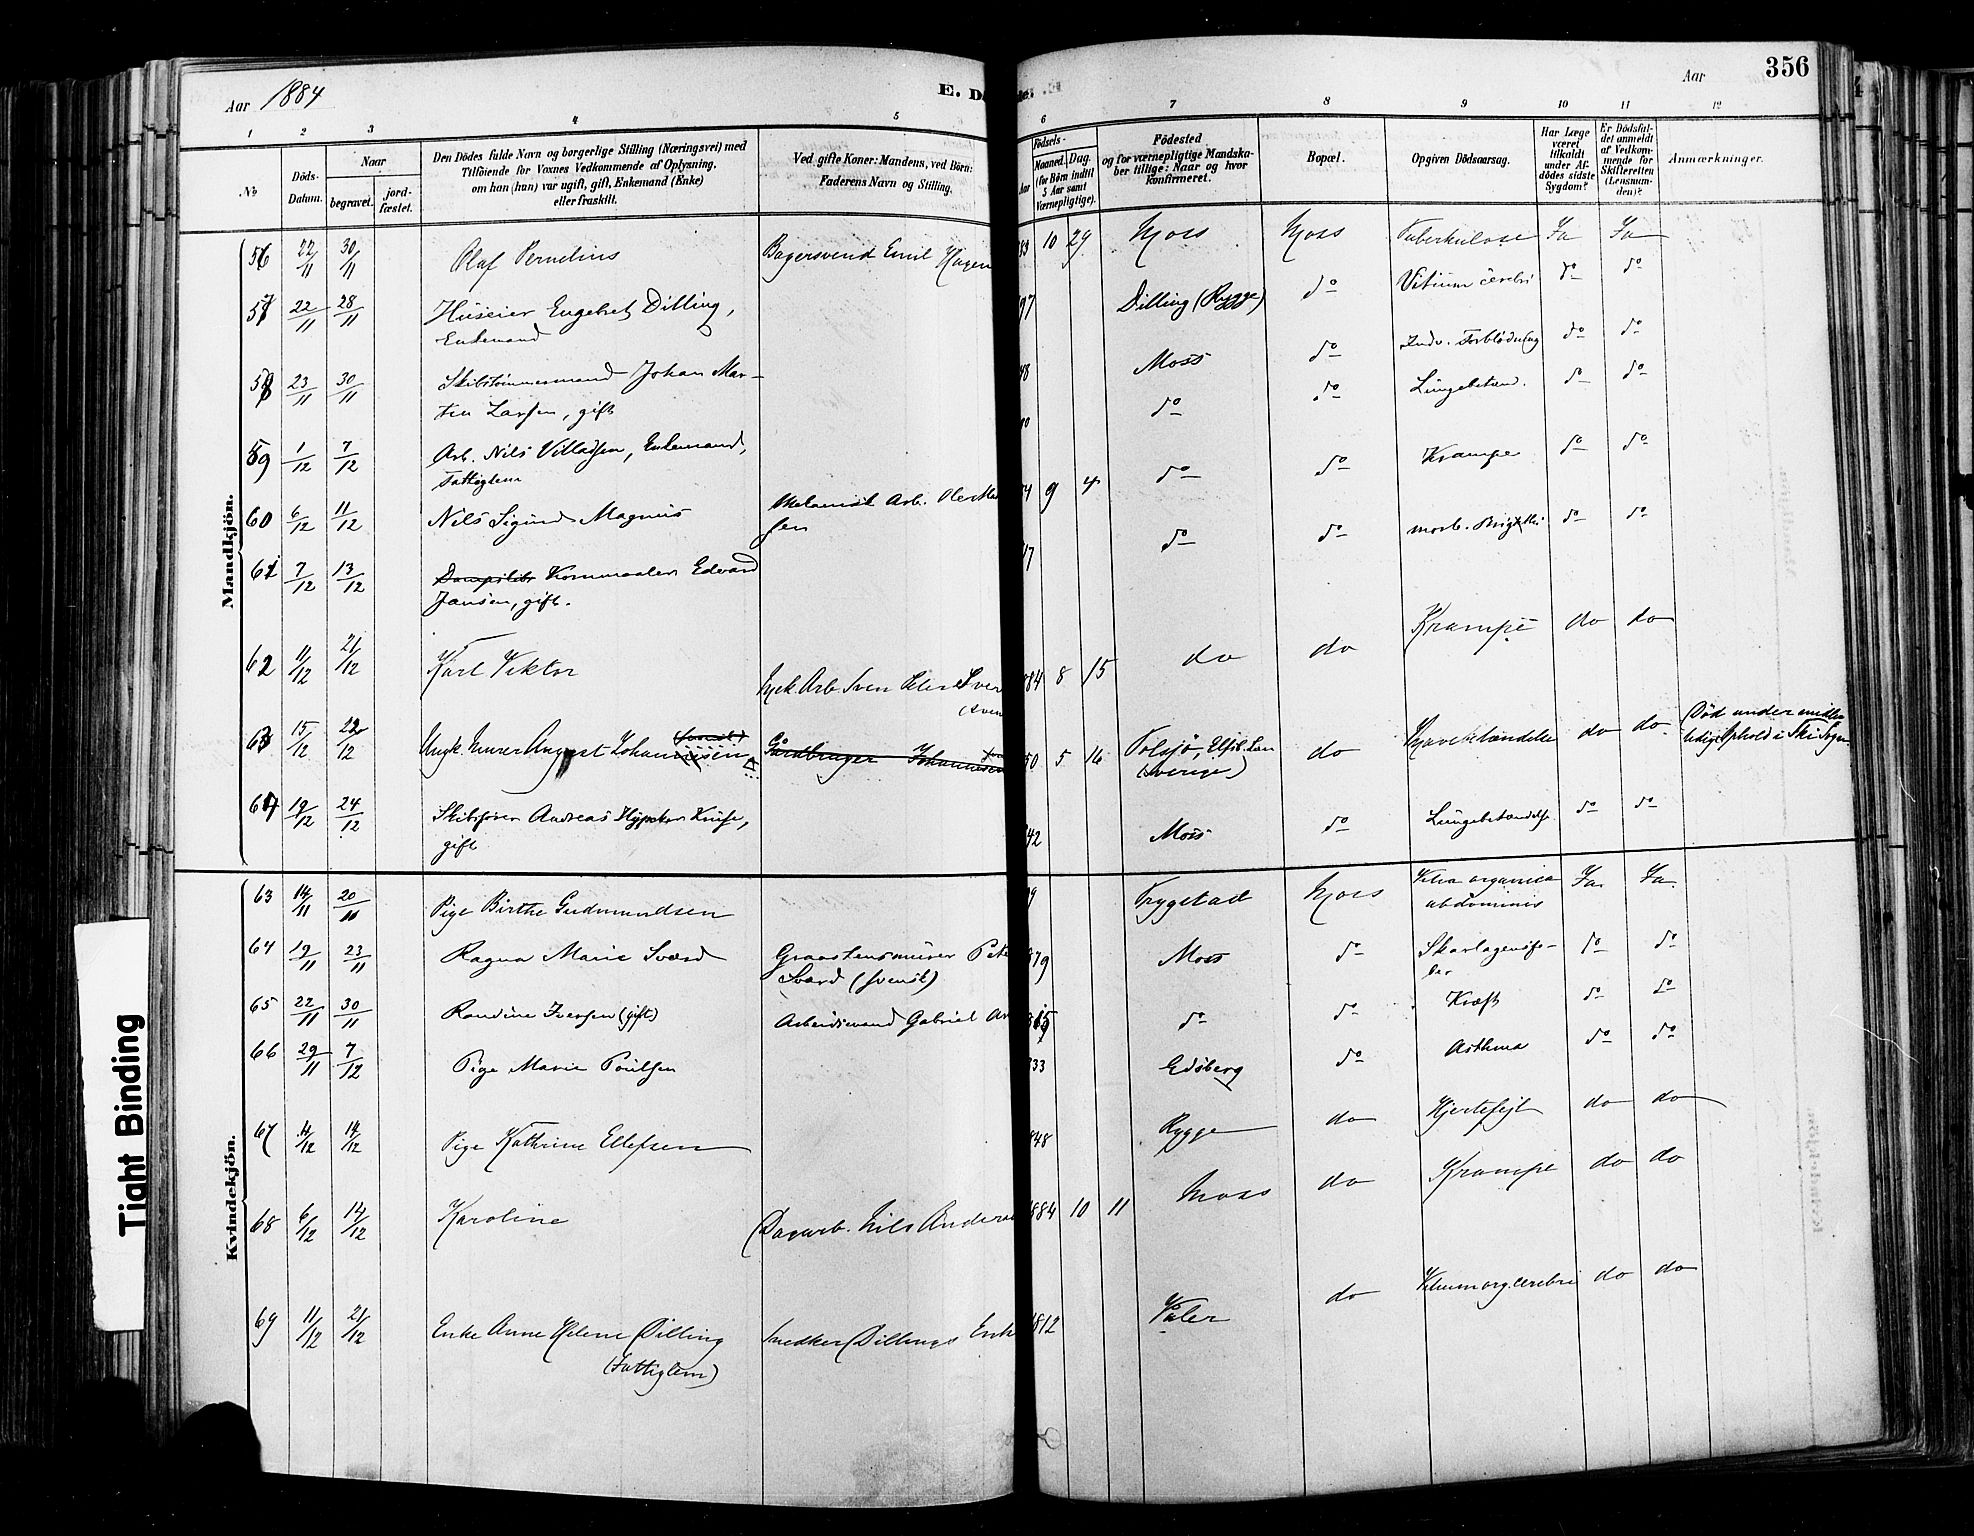 Aar 1884
E. Dö
1 2 3 4 5
No
Döds-Datum.
Naar
begravet. jord-fæstet.
Den Dödes fulde Navn og borgerlige Stilling (Næringsvei) med
Tilföiende for Voxnes Vedkommende af Oplysning,
om han (hun) var ugift, gift, Enkemand (Enke)
eller fraskilt.
Ved gifte Koner: Mandens, ved Börn:
Faderens Navn og Stilling.
Aar 356
6 7 8 9 10 11 12
Födsels-
Aar Maaned. Dag.
(for Börn indtil
5 Aar samt
Værnepligtige).
Födested
og for værnepligtige Mandska-
ber tillige: Naar og hvor
konfirmeret.
Bopæl.
Opgiven Dödsaarsag.
Har Læge
været
tilkaldt
under Af-
dödes sidste
Sygdom?
Er Dödsfal-
det anmeldt
af Vedkom-
mende for
Skifteretten
(Lensman-
den)?
Anmærkninger.
Mandkjön.
56 22/11 30/11 Olaf Pernelius Bagersvend Emil Hagen 83 10 29 Moss Moss Tuberkulose Ja Ja
57 22/11 28/11 Huseier Engebret Dilling,
Enkemand 97 Dilling (Rygge) do Vitium cerebri do do
58 23/11 30/11 Skibstømmermand Johan Mar-
tin Larsen, gift 48 Moss do Indv. Forblødning do do
59 1/12 7/12 Arb. Nils Villadsen, Enkemand,
Fattiglem do do Lungebetænd. do do
60 6/12 11/12 Nils Sigurd Magnus Arb. Ole
sen 9 4 do do Krampe do do
61 7/12 13/12 Kornmaaler Edvard
Jansen, gift. 47 do do morb. Brightii do do
62 11/12 21/12 Karl Viktor Arb Sven 84 8 15 do do Krampe do do
63 15/12 22/12 Ungk. Murer August Johannesen
(svensk) Gårdbruger Johannesen 50 5 16 (Sverige) do do do
Død under midler-
tidigt Ophold i Ski Sogn
64 19/12 24/12 Skibsfører Andreas Kruse,
gift 42 Moss do Lungebetændelse do do
Kvindekjön.
63 14/11 20/11 Pige Birthe Gudmundsen Trygstad Moss organica
abdominis Ja. Ja.
64 19/11 23/11 Ragna Marie Sværd Graastensmurer Pete
Sværd (svensk) 879 Moss do Skarlagensfe-
ber do do
65 22/11 30/11 Randine Iversen (gift) Arbeidsmand Gabriel do do Kræft do do
66 29/11 7/12 Pige Marie Poulsen 833 Edsberg do Asthma do do
67 4/12 14/12 Pige Kathrine Ellefsen 848 Rygge do Hjertefejl do do
68 6/12 14/12 Karoline Dagarb. Nils Anderse 1884 10 11 Moss do Krampe do do
69 11/12 21/12 Enke Anne Helene Dilling
(Fattiglem) Snedker Dillings Enke 1812 Våler do Vitium org. cerebri do do
Tight Binding